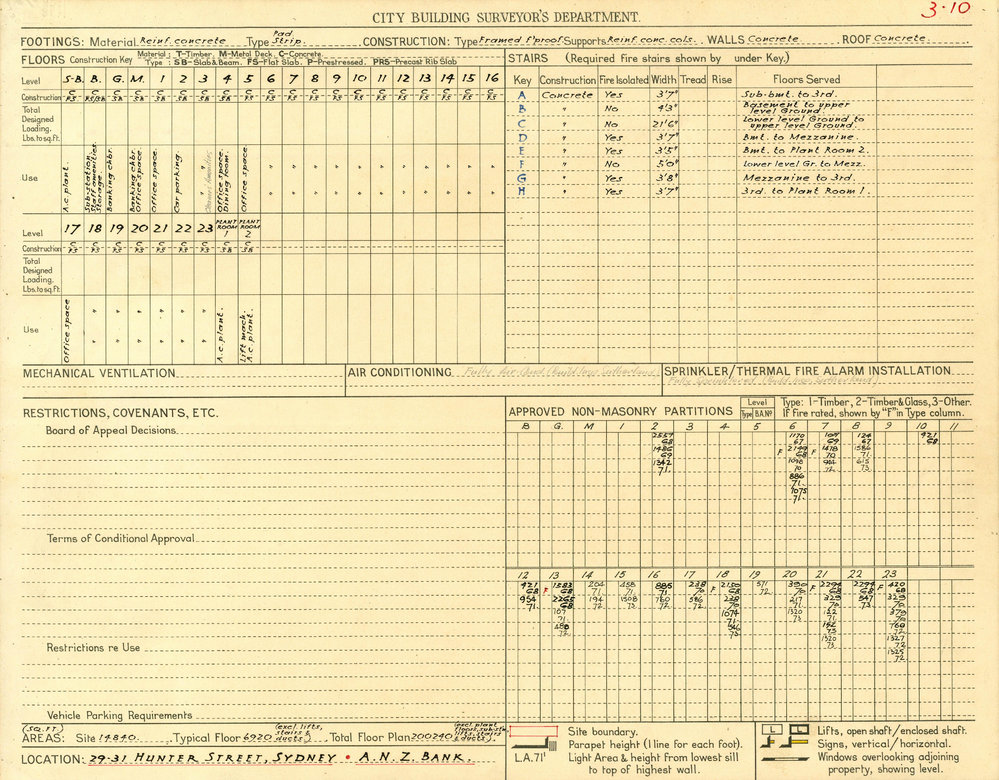 CITY BUILDING SURVEYOR'S DEPARTMENT.
3·10
FOOTINGS: Material Reinf. concrete Type Pad Strip. CONSTRUCTION: Type Framed f'proof Supports Reinf. conc. cols. WALLS Concrete ROOF Concrete.
FLOORS Construction Key Material: T-Timber, M-Metal Deck, C-Concrete.
Type: SB-Slab & Beam. FS-Flat Slab. P-Prestressed. PRS-Precast Rib Slab
Level S-B. B. G. M. 1 2 3 4 5 6 7 8 9 10 11 12 13 14 15 16
Construction
Total Designed Loading. Lbs. to sq. ft.
Use
A.c. plant.
Sub-station. Staff amenities. Storage.
Banking chbr.
Banking chbr. Office space.
Office space.
Car parking.
"
Office space. Dining room.
Office space.
" " " " " " " " " " "
Level 17 18 19 20 21 22 23 PLANT ROOM 1 PLANT ROOM 2
Construction
Total Designed Loading. Lbs. to sq. ft.
Use
Office space
" " " " " "
A.c. plant.
Lift mach. A.c. plant.
STAIRS (Required fire stairs shown by under Key.)
Key Construction Fire Isolated Width Tread Rise Floors Served
A Concrete Yes 3'7" Sub-bmt. to 3rd.
B " No 4'3" Basement to upper level Ground.
C " No 21'6" Lower level Ground to upper level Ground.
D " Yes 3'7" Bmt. to Mezzanine.
E " Yes 3'5" Bmt. to Plant Room 2.
F " No 5'0" Lower level Gr. to Mezz.
G " Yes 3'8" Mezzanine to 3rd.
H " Yes 3'7" 3rd. to Plant Room 1.
MECHANICAL VENTILATION
AIR CONDITIONING Fully Air Cond.
SPRINKLER/THERMAL FIRE ALARM INSTALLATION
Fully Sprinklered
RESTRICTIONS, COVENANTS, ETC.
Board of Appeal Decisions.
Terms of Conditional Approval
Restrictions re Use
Vehicle Parking Requirements
APPROVED NON-MASONRY PARTITIONS
Level
Type B.A. No
Type: 1-Timber, 2-Timber & Glass, 3-Other.
If fire rated, shown by "F" in Type column.
B G. M 1 2 3 4 5 6 7 8 9 10 11
2557 68 1486 69 1342 71.
1170 67 F 2149 68 1098 70 886 71. 1075 71.
107 69 F 1878 70 72
124 67 1586 71. 615 73
921 68
12 13 14 15 16 17 18 19 20 21 22 23
421 68 954 71.
F 1583 68 2265 68 107 71 488 72
204 71 194 72
458 71 1508 73
885 71 760 72
238 70 586 72
F 2150 68 238 70 1074 71.
571 72
390 70 217 71 1320 73
F 2294 68 329 70 73
2294 68 547 72
F 420 68 329 70 370 70 760 72 1327 72 1325 72
AREAS: (SQ. FT.) Site 14840. Typical Floor 6920 (excl. lifts, stairs & ducts). Total Floor Plan 200240
LOCATION: 29-31 HUNTER STREET, SYDNEY • A.N.Z. BANK.
Site boundary.
Parapet height (1 line for each foot).
L.A. 71' Light Area & height from lowest sill to top of highest wall.
L L Lifts, open shaft/enclosed shaft.
Signs, vertical/horizontal.
Windows overlooking adjoining property, showing level.